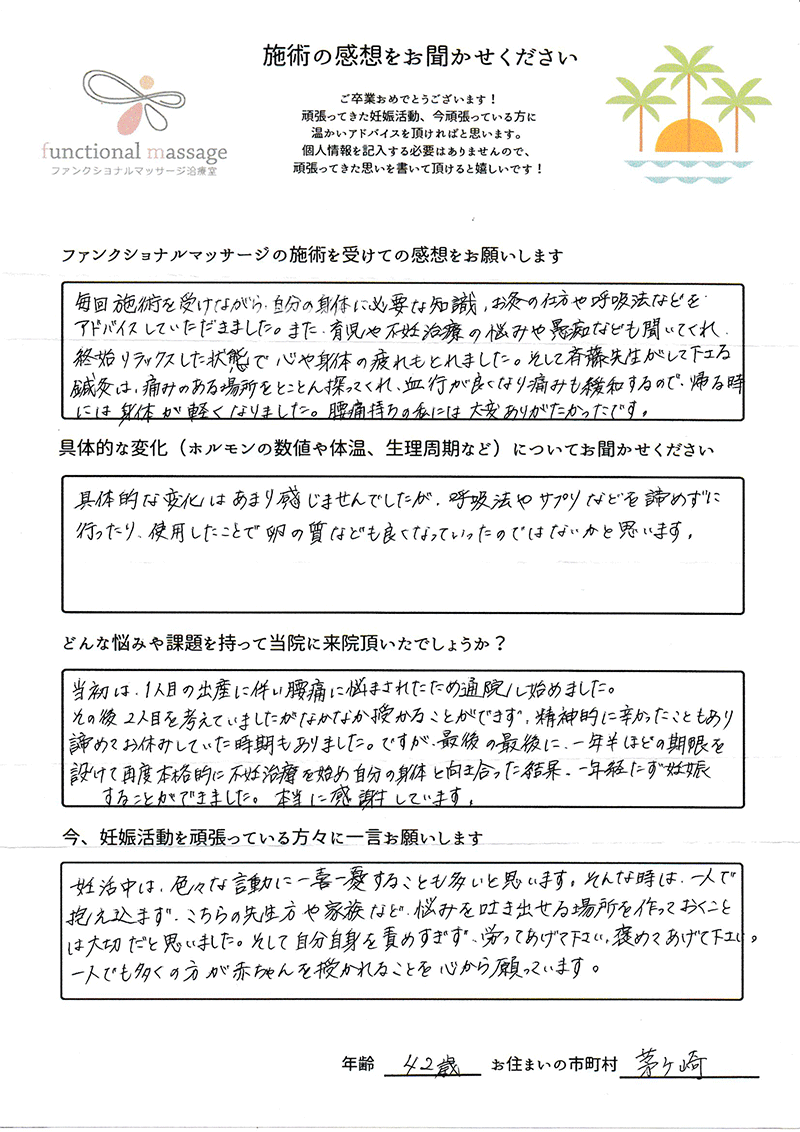 施術の感想をお聞かせください
functional massage
ファンクショナルマッサージ治療室
ご卒業おめでとうございます！
頑張ってきた妊娠活動、今頑張っている方に
温かいアドバイスを頂ければと思います。
個人情報を記入する必要はありませんので、
頑張ってきた思いを書いて頂けると嬉しいです！
ファンクショナルマッサージの施術を受けての感想をお願いします
毎回施術を受けながら、自分の身体に必要な知識、お灸の仕方や呼吸法などを
アドバイスしていただきました。また、育児や不妊治療の悩みや愚痴なども聞いてくれ、
終始リラックスした状態で心や身体の疲れもとれました。そして斉藤先生がして下さる
鍼灸は、痛みのある場所をとことん探ってくれ、血行が良くなり痛みも緩和するので、帰る時
には身体が軽くなりました。腰痛持ちの私には大変ありがたかったです。
具体的な変化（ホルモンの数値や体温、生理周期など）についてお聞かせください
具体的な変化はあまり感じませんでしたが、呼吸法やサプリなどを諦めずに
行ったり、使用したことで卵の質なども良くなっていったのではないかと思います。
どんな悩みや課題を持って当院に来院頂いたでしょうか？
当初は、1人目の出産に伴い腰痛に悩まされたため通院し始めました。
その後2人目を考えていましたがなかなか授かることができず、精神的に辛かったこともあり
諦めてお休みしていた時期もありました。ですが、最後の最後に、一年半ほどの期限を
設けて再度本格的に不妊治療を始め自分の身体と向き合った結果、一年経たず妊娠
することができました。本当に感謝しています。
今、妊娠活動を頑張っている方々に一言お願いします
妊活中は、色々な言動に一喜一憂することも多いと思います。そんな時は、一人で
抱え込まず、こちらの先生方や家族など、悩みを吐き出せる場所を作っておくこと
は大切だと思いました。そして自分自身を責めすぎず、労ってあげて下さい、褒めてあげて下さい。
一人でも多くの方が赤ちゃんを授かれることを心から願っています。
年齢 42歳 お住まいの市町村 茅ヶ崎